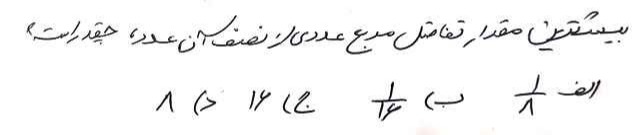 بیشترین مقدار تفاضل مربع عددی از نصف آن عدد، چقدر است؟
الف 1/8 ب) 1/16 ج) 16 د) 8